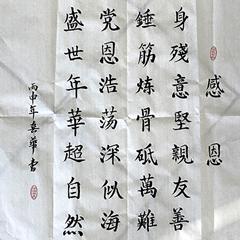 感恩
身殘意堅親友善
錘筋炼骨砥萬難
党恩浩荡深似海
盛世年華超自然
丙申年喜華書